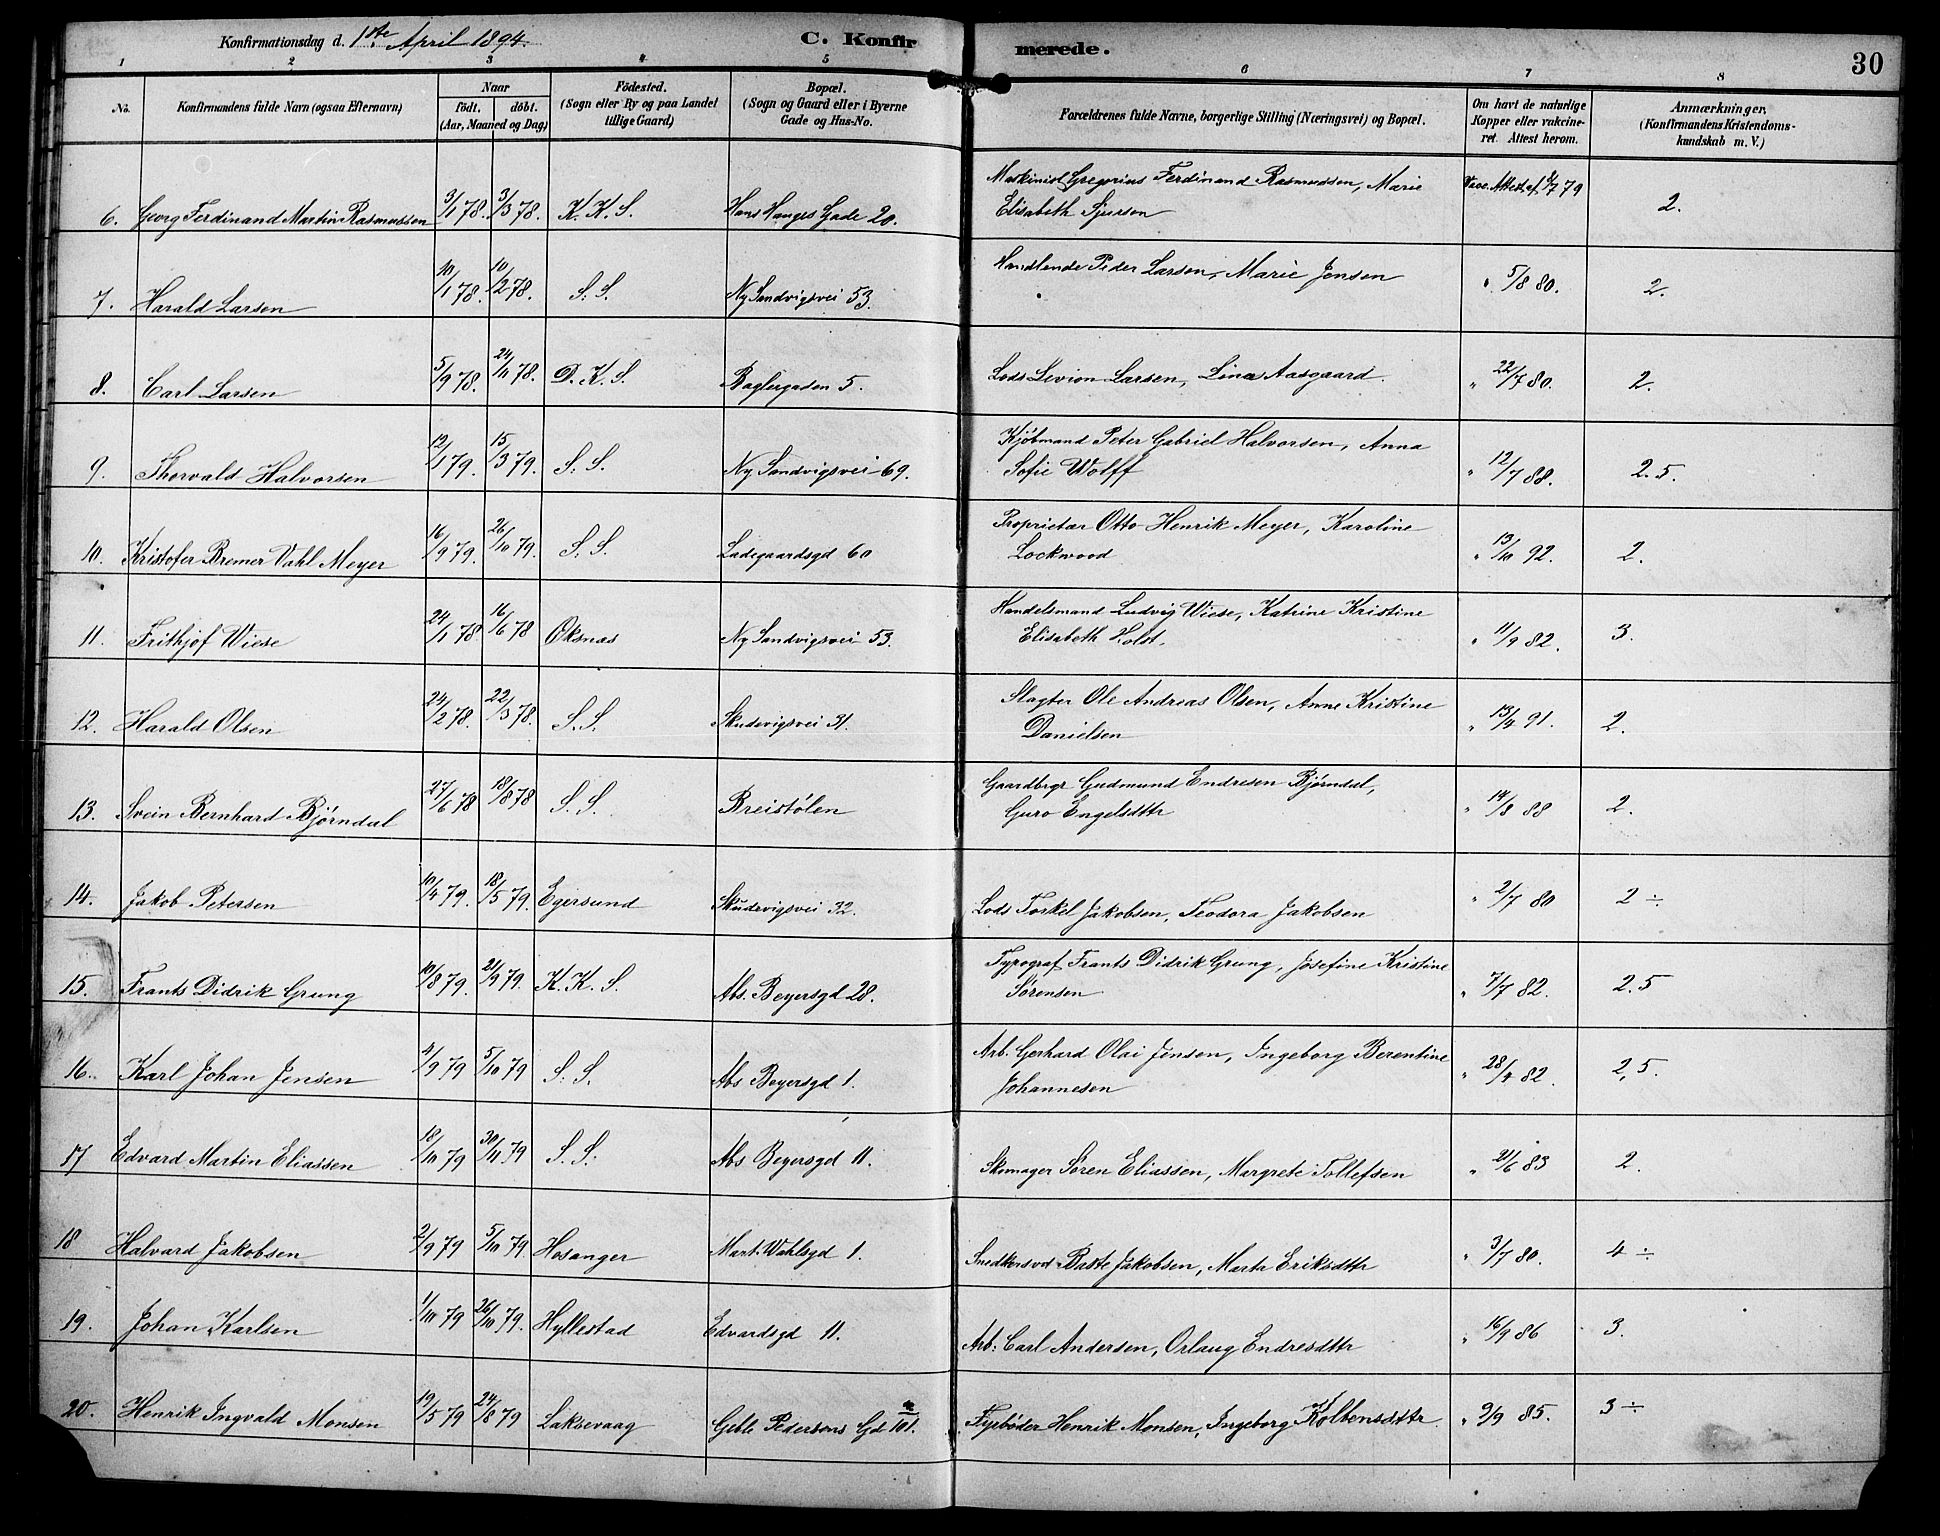 Konfirmationsdag d. 1ste April 1894. C. Konfir merede. 30
1 2 3 4 5 6 7 8
No. Konfirmandens fulde Navn (ogsaa Efternavn) Naar födt. döbt. (Aar, Maaned og Dag) Födested. (Sogn eller By og paa Landet tillige Gaard) Bopæl. (Sogn og Gaard eller i Byerne Gade og Hus-No. Forældrenes fulde Navne, borgerlige Stilling (Næringsvei) og Bopæl. Om havt de naturlige Kopper eller vakcineret. Attest herom. Anmærkninger. (Konfirmandens Kristendomskundskab m. V.)
6. Georg Ferdinand Martin Rasmussen 3/1 78. 3/3 78. K. K. S. Hans Hauges Gade 20. Maskinist Gregorius Ferdinand Rasmussen, Marie Elisabeth Sjursen Vacc. Attest af 79 2.
7. Harald Larsen 10/1 78. 10/2 78. S. S. Ny Sandvigsvei 53. Handlende Peder Larsen, Marie Jensen " 5/8 80. 2.
8. Carl Larsen 5/9 78. 24/11 78. D. K. S. Baglergaden 5. Lods Levion Larsen, Lina Aasgaard. " 22/7 80. 2.
9. Thorvald Halvorsen 12/1 79. 15/3 79. S. S. Ny Sandvigsvei 69. Kjøbmand Peter Gabriel Halvorsen, Anna Sofie Wolff " 12/7 88. 2.5.
10. Kristofer Bremer Vahl Meyer 16/9 79. 26/10 79. S. S. Ladegaardsgd 60 Proprietær Otto Henrik Meyer, Karoline Lockwood " 13/10 92. 2.
11. Frithjof Wiese 24/1 78. 16/6 78 Oksnæs Ny Sandvigsvei 53. Handelsmand Ludvig Wiese, Katrine Kristine Elisabeth Holst. " 11/9 82. 3.
12. Harald Olsen 24/2 78. 22/3 78. S. S. Skudevigsvei 31. Slagter Ole Andreas Olsen, Anne Kristine Danielsen " 13/4 91. 2.
13. Svein Bernhard Bjørndal 27/6 78 18/8 78 S. S. Breistølen Gaardbrgr Gudmund Endresen Bjørndal, Guro Engelsdttr " 14/8 88 2.
14. Jakob Petersen 10/4 79. 18/5 79. Egersund Skudevigsvei 32. Lods Torkel Jakobsen, Teodora Jakobsen " 2/7 80 2 ÷
15. Frants Didrik Grung 10/8 79. 21/9 79. K. K. S. Abs. Beyersgd 28. Typograf Frants Didrik Grung, Josefine Kristine Sørensen " 7/7 82. 2.5
16. Karl Johan Jensen 4/9 79 5/10 79 S. S. Abs Beyersgd 1. Arb. Gerhard Olai Jensen, Ingeborg Berentine Johannesen " 28/4 82. 2,5.
17 Edvard Martin Eliassen 18/10 79 30/11 79 S. S. Abs Beyersgd 11. Skomager Søren Eliassen, Margrete Tollefsen " 21/6 83 2.
18 Halvard Jakobsen 2/9 79 5/10 79 Hosanger Mart. Wahlsgd 1. Snedkersvd Baste Jakobsen, Marta Eriksdttr " 3/7 80. 4 ÷
19. Johan Karlsen 1/10 79 26/10 79. Hyllestad Edvardsgd 11. Arb: Carl Andersen, Orlaug Endresdttr " 16/9 86 3.
20. Henrik Ingvald Monsen 19/5 79 24/8 79 Laksevaag Geble Pedersøns Gd 101. Fyrbøder Henrik Monsen, Ingeborg Kolbensdttr " 9/9 85. 3 ÷